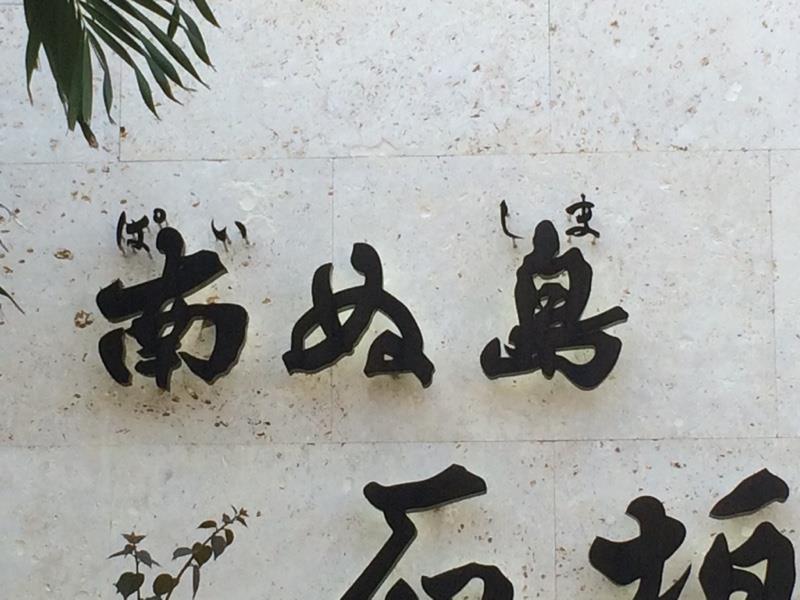 ぱい しま
南ぬ島
石垣